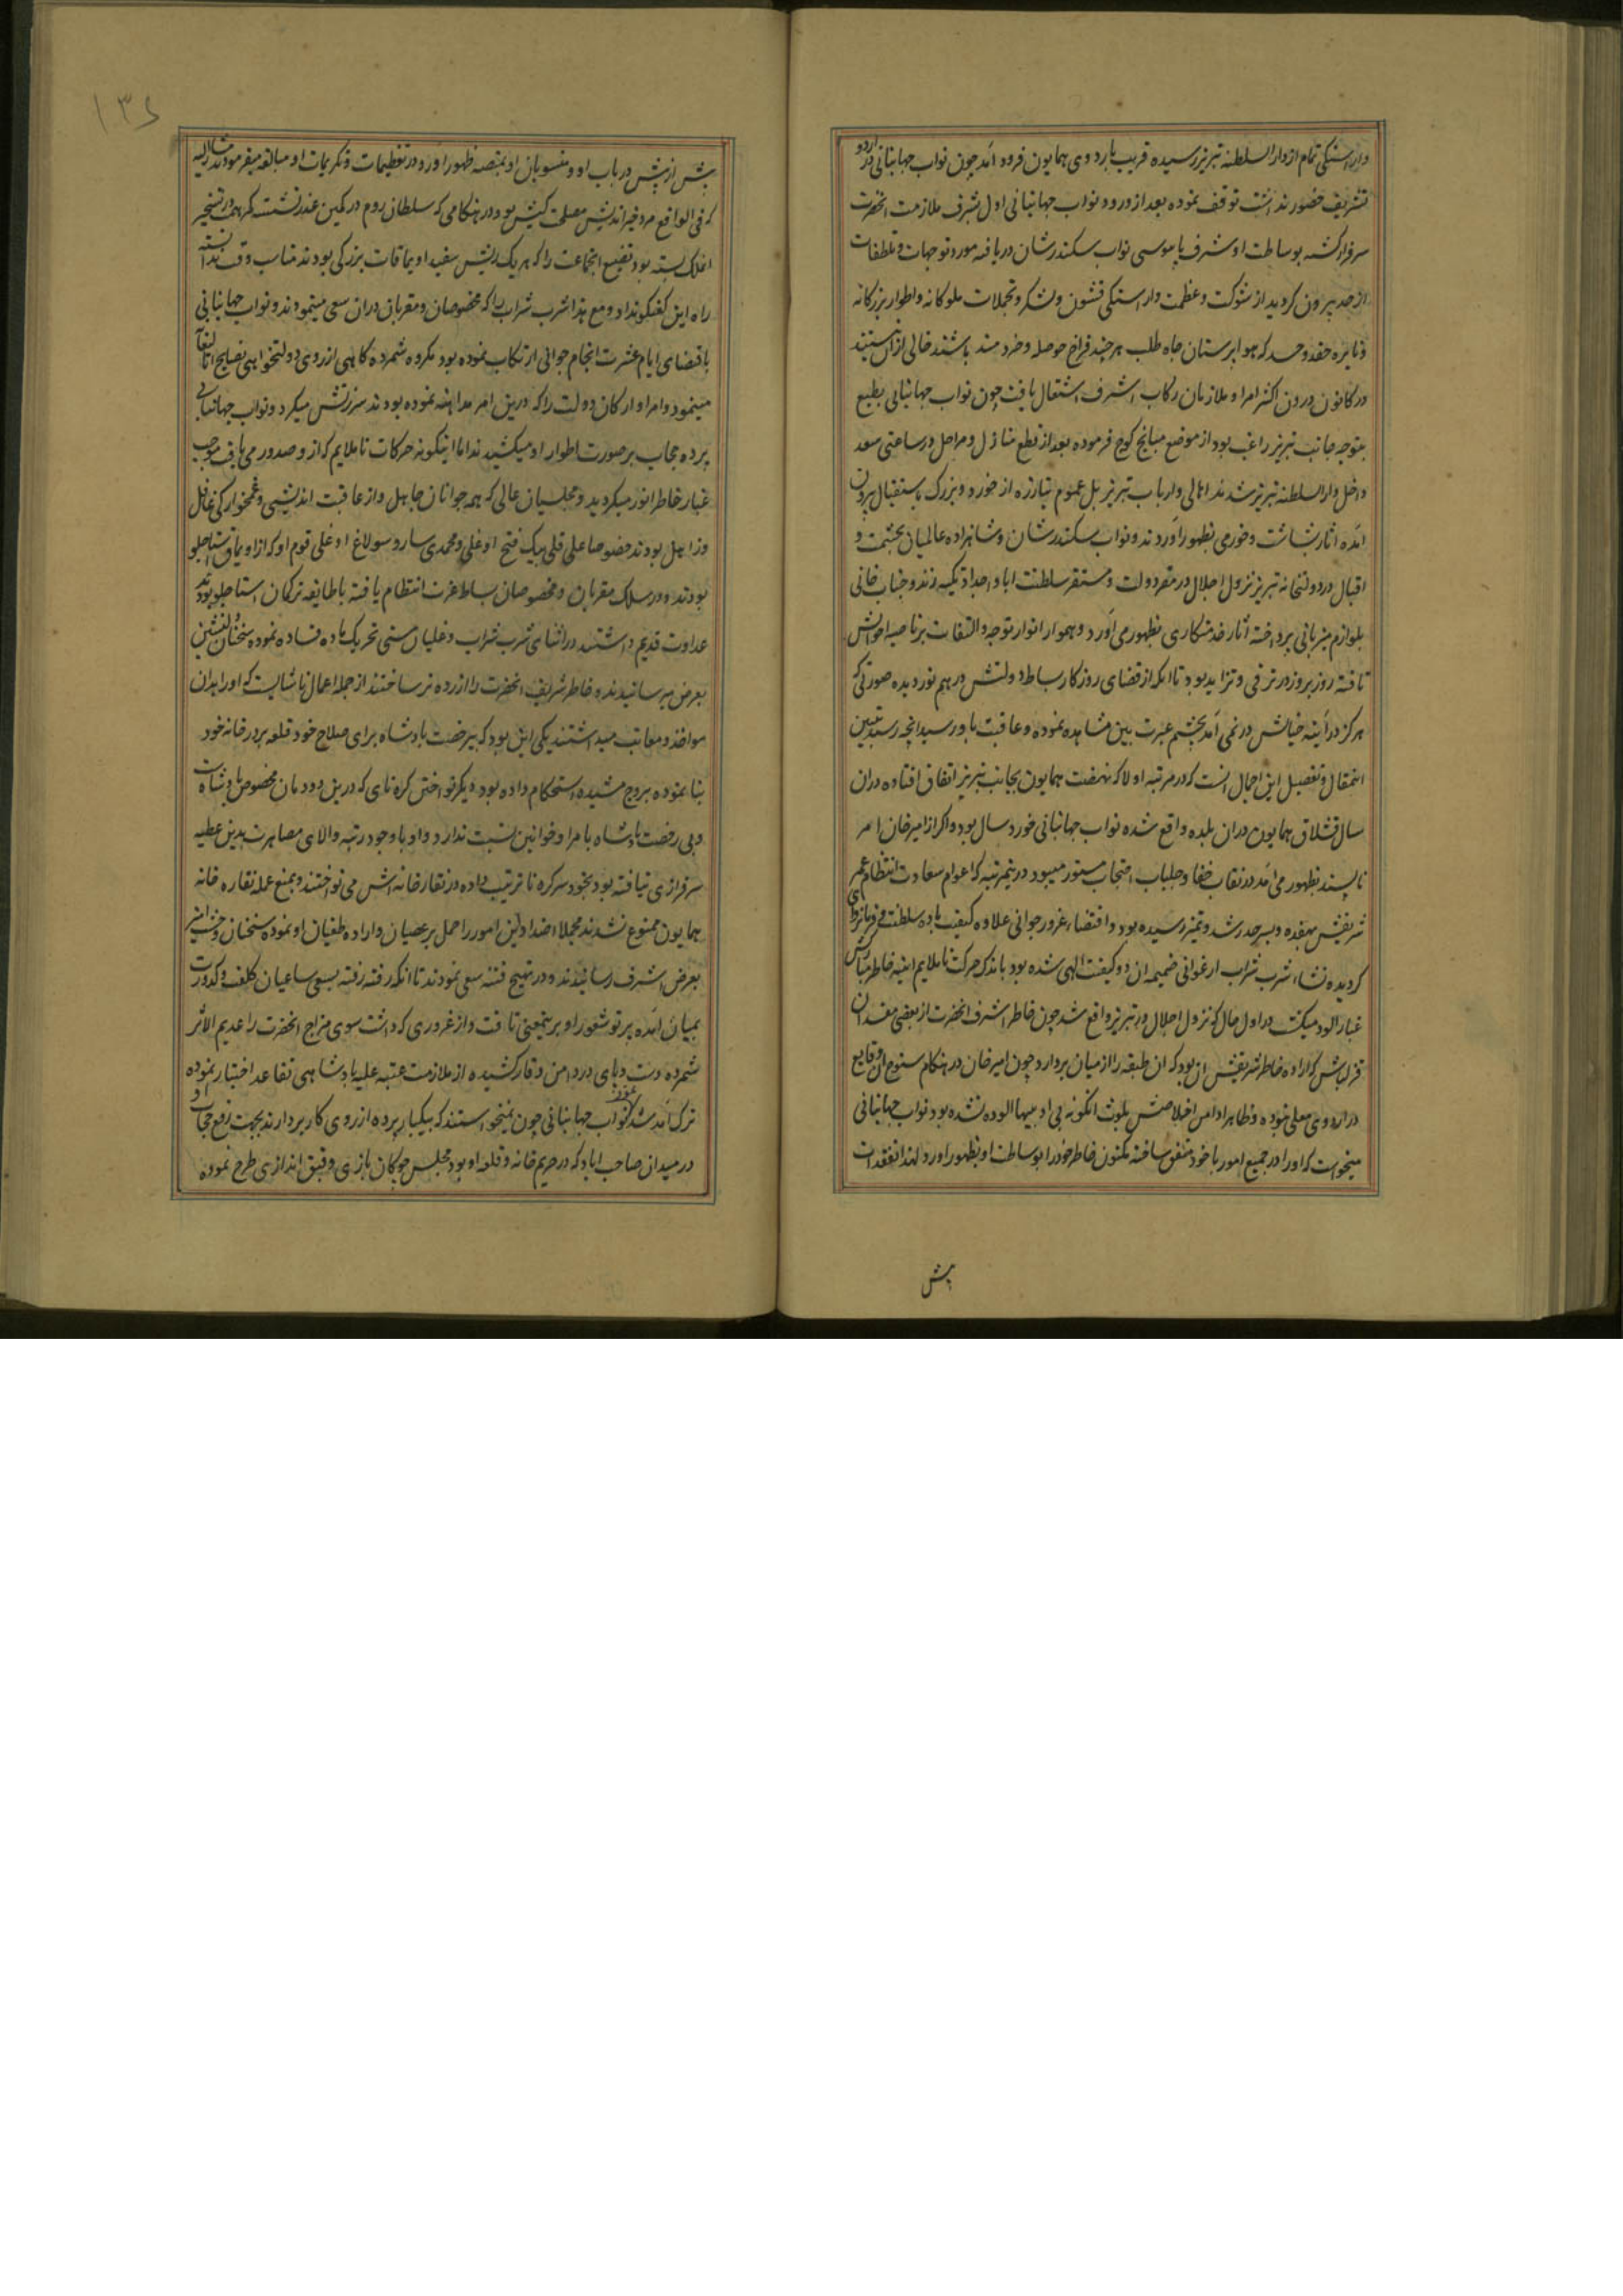 وآراستگی تمام از دار السلطنه تبریز رسیده قریب باردوی همایون فرود آمد چون نواب جهانبانی در اردو
تشریف حضور نداشت توقف نموده بعد از ورود نواب جهانبانی اول بشرف ملازمت انحضرت
سرافراز گشته بوساطت او شرف پابوسی نواب سکندرشان دریافته مورد توجهات و تلطفات
از حد بیرون گردید از شوکت و عظمت و اراستگی قشون و لشکر و تجملات ملوکانه و اطوار بزرگانه
و نایره حقد و حسد که هواپرستان جاه طلب هر چند فراخ حوصله و خردمند باشند خالی از ان نیستند
در کانون درون اکثر امرا و ملازمان رکاب اشرف اشتعال یافت چون نواب جهانبانی بطبع
بتوجه جانب تبریز راغب بود از موضع میانج کوچ فرموده بعد از قطع منازل و مراحل در ساعتی سعد
داخل دار السلطنه تبریز شدند اهالی و ارباب تبریز بل عموم تبارزه از خورد و بزرگ باستقبال بیرون
آمده اثار بشاشت و خرمی بظهور آوردند و نواب سکندرشان و شاهزاده عالمیان بحشمت و
اقبال در دولتخانه تبریز نزول اجلال در مقر دولت و مستقر سلطنت ابا و اجداد تکیه زدند و جناب خانی
بلوازم میزبانی پرداخته آثار خدمتکاری بظهور می آورد و همواره انوار توجه و التفات بر ناصیه احوالش
تافته روز بروز در ترقی و تزاید بود تا آنکه از قضای روزکار بساط دولتش در هم نوردیده صورتی که
هرگز در آینه خیالش در نمی آمد بچشم عبرت بین مشاهده نموده و عاقبت باو رسید انچه رسید تبیین
اینمقال و تفصیل این اجمال انست که در مرتبه اولا که نهضت همایون بجانب تبریز اتفاق افتاده دران
سال قشلاق همایون دران بلده واقع شده نواب جهانبانی خورد سال بود و اکر از امیرخان امر
ناپسند بظهور می آمد در نقاب خفا و جلباب احتجاب مستور میبود درینمرتبه که اعوام سعادت انتظام عمر
شریفش بهفده و بسر حد رشد و تمیز رسیده بود و اقتضاء غرور جوانی علاوه کیفیت باده سلطنت و فرمانروای
گردیده نشاء شرب شراب ارغوانی ضمیمه ان دو کیفیت الهی شده بود باندک حرکت ناملایم اینه خاطر مبارکش
غبار الود میکشت در اول حال که نزول اجلال در تبریز واقع شد چون خاطر اشرف انحضرت از بعضی مفسدان
قزلباش که اراده خاطر شریفش ان بود که ان طبقه را از میان بردارد و چون امیرخان در هنکام سنوح ان وقایع
در اردوی معلی نبوده و ظاهرا دامن اخلاصش بلوث انگونه بی ادبیها الوده نشده بود نواب جهانبانی
میخواست که اورا در جمیع امور با خود متفق ساخته مکنون خاطر خود را بوساطت او بظهور اورد لهذا تفقدات
بیش
۱۳۶
بیش از پیش در باب او و منسوبان او بمنصه ظهور اورد و در تعظیمات و تکریمات او مبالغه میفرمودند مشارالیه
که فی الواقع مرد خیراندیش مصلحت کیش بود در هنکامی که سلطان روم در کمین غدر نشسته کمر همت در تسخیر
املاک بسته بود تضییع انجماعت را که هر یک ریش سفید اویماقات بزرکی بودند مناسب وقت ندانسته
راه این گفتگو نداد و مع هذا شرب شراب را که مخصوصان و مقربان دران سعی مینمودند و نواب جهانبانی
باقتضای ایام عشرت انجام جوانی ارتکاب نموده بود مکروه شمرده گاهی از روی دولتخواهی نصایح
مینمود و امرا و ارکان دولت را که درین امر مداهنه نموده بودند سرزنش میکرد و نواب جهانبانی
پرده حجاب بر صورت اطوار او میکشیدند اما اینگونه حرکات ناملایم که از و صدور می یافت موجب
غبار خاطر انور میکردید و مجلسیان عالی که همه جوانان جاهل و از عاقبت اندیشی و غمخوارکی غافل
و ذاهل بودند خصوصا علی قلی بیک فتح اوغلی و محمدی سارو سولاغ اوغلی قوم او که از اویماق استاجلو
بودند و در سلک مقربان و مخصوصان بساط عزت انتظام یافته با طایفه ترکمان استاجلو بودند
عداوت قدیم داشتند در اثنای شرب شراب و غلیان مستی تحریک ماده فساد نموده سخنان
بعرض میرسانیدند و خاطر شریف انحضرت را ازرده تر ساختند از جمله اعمال ناشایست که اورا بدان
مواخذ و معاتب میداشتند یکی این بود که بیرخصت پادشاه برای صلاح خود قلعه بر در خانه خود
بنا نموده ببروج مشیده استحکام داده بود دیکر نواختن کره نای که درین دودمان مخصوص پادشاه است
و بی رخصت پادشاه بامرا و خوانین نسبت ندارد و او با وجود رتبه والای مصاهرت بدین عطیه
سرافرازی نیافته بود بخود سر کره نا ترتیب داده در نقارخانه اش می نواختند و بمنع عمله نقاره خانه
همایون ممنوع نشدند مجملا اضداد این امور را حمل بر عصیان و اراده طغیان او نموده سخنان وحشت امیز
بعرض اشرف رسانیدند و در تهییج فتنه سعی نمودند تا انکه رفته رفته بسعی ساعیان کلفت و کدورت
بمیان آمده پرتو شعور او بر ینمعنی تافت و از غروری که داشت سوی مزاج انحضرت را عدیم الاثر
شمرده دست و پای در دامن وقار کشیده از ملازمت عتبه علیه پادشاهی تقاعد اختیار نموده
ترک آمد شد نمود و نواب جهانبانی چون نمیخواستند که بیکبار پرده از روی کار بردارند بجهت رفع حجاب
در میدان صاحب اباد که در حریم خانه و قلعه او بود مجلس چوکان بازی و قبق اندازی طرح نموده